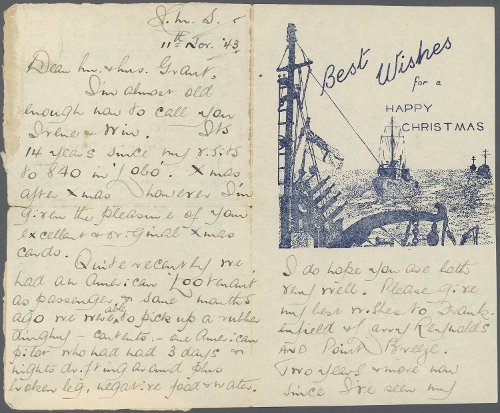 11th Nov. '43
Dear Mr. & Mrs. Grant.
I'm almost old
enough now to call you
Irene & Win. Its
14 years since my visits
to 840 in 'Lobo'. Xmas
after Xmas however I'm
given the pleasure of your
excellent & original Xmas
cards.
Quite recently we
had an American Lootenant
as passenger, & some months
ago we were able to pick up a rubber
dinghy – contents – one American
pilot who had had 3 days &
nights drifting around plus
broken leg, negative food & water.
Best Wishes
for a
HAPPY
CHRISTMAS
I do hope you are both
very well. Please give
my best wishes to Frank-
infield & any Reynolds
AND Point Breeze.
Two years & more now
since I've seen my